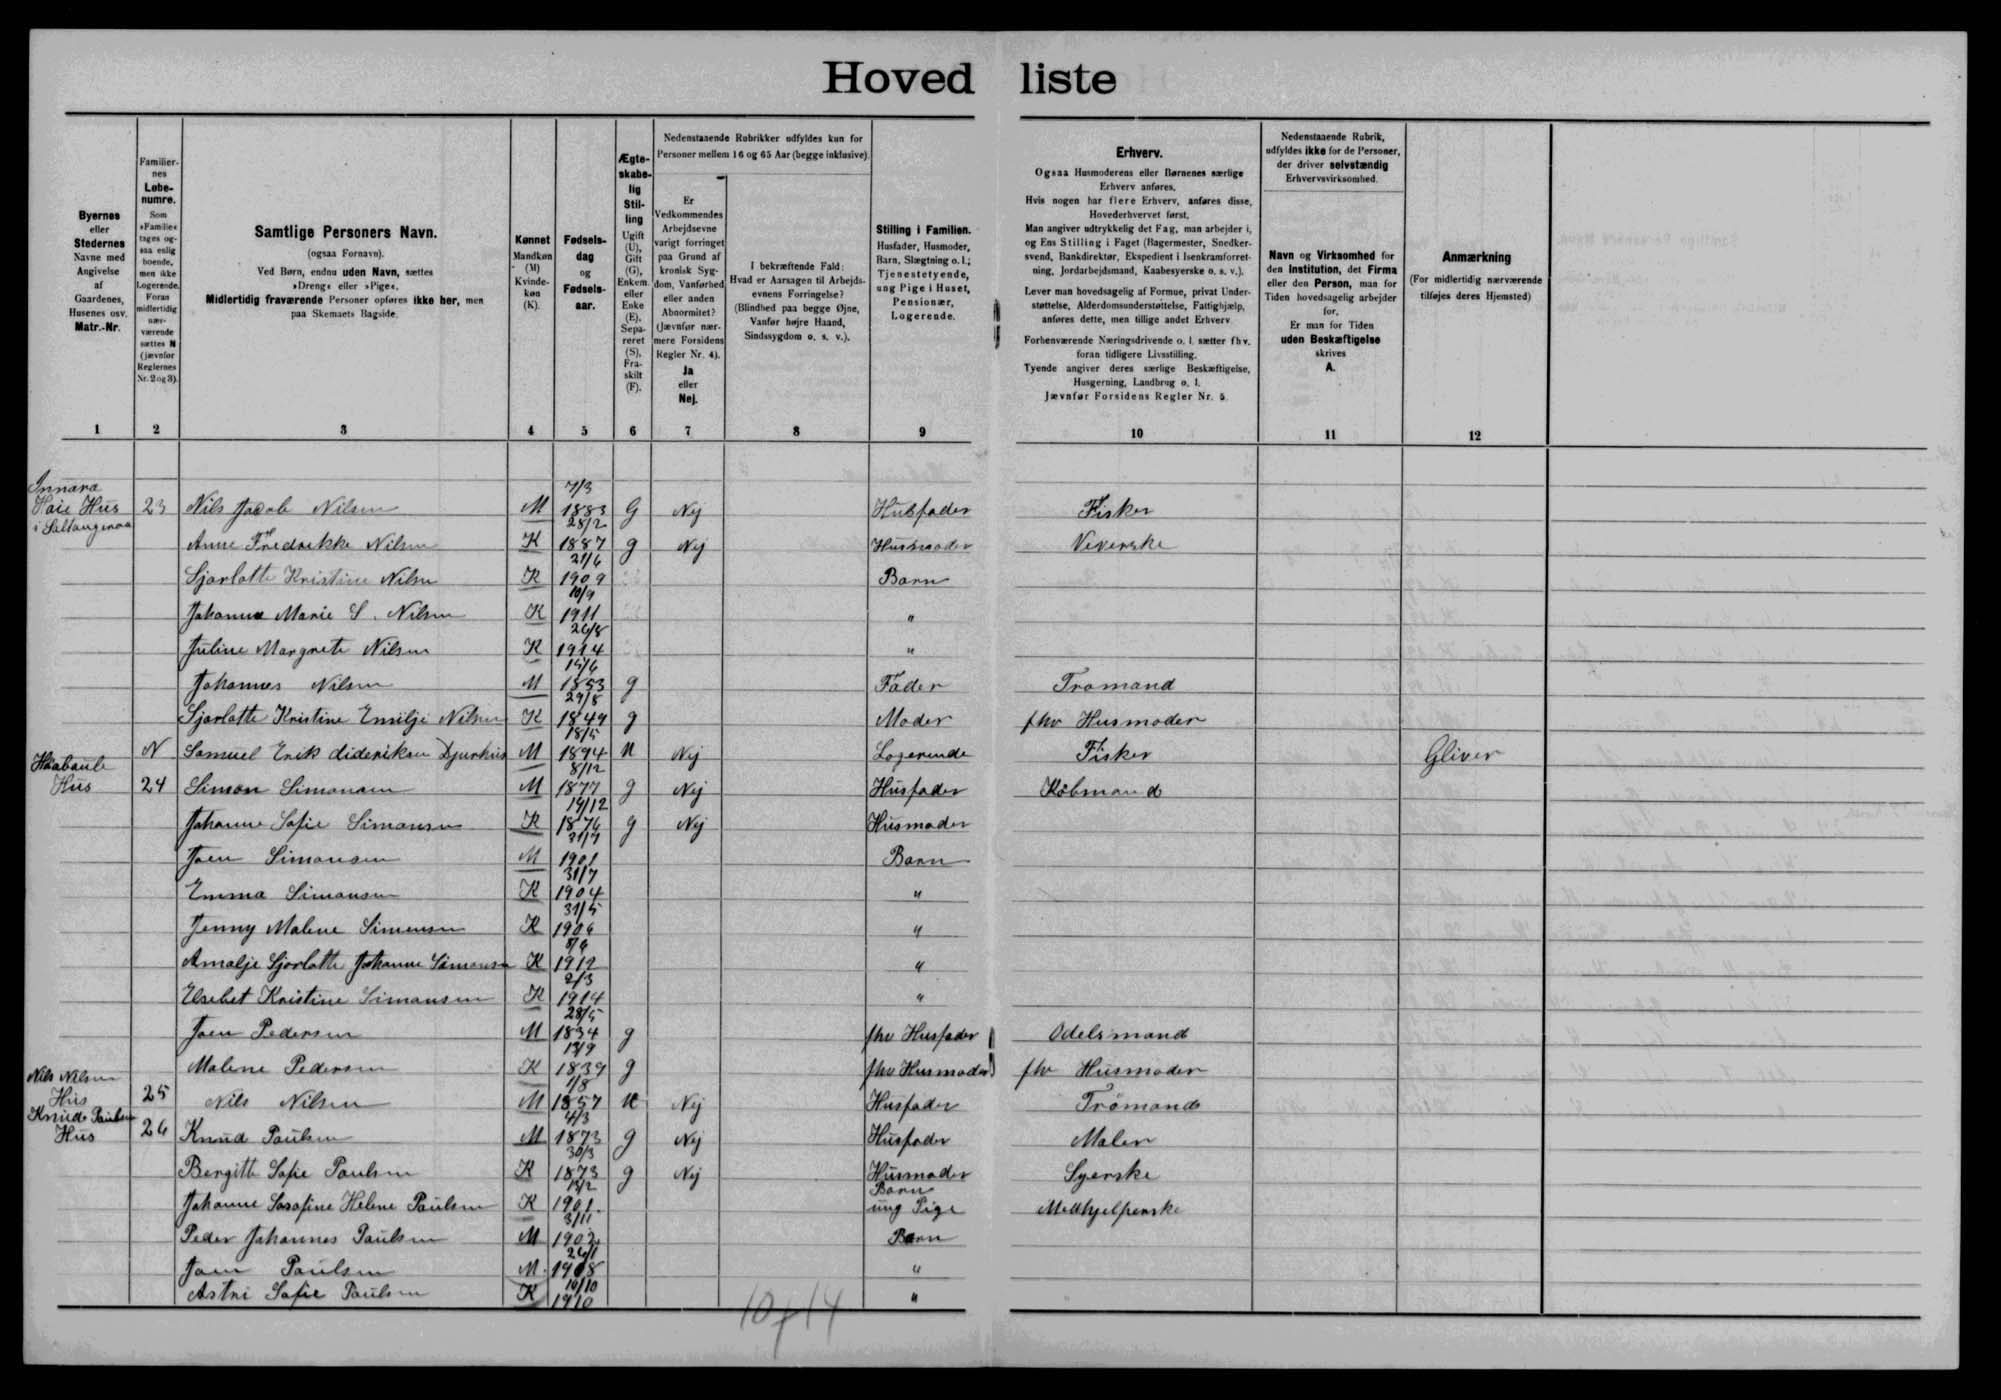 Hoved liste
Byernes
eller
Stedernes
Navne med
Angivelse
af
Gaardenes,
Husenes osv.
Matr.-Nr.
Familier-
nes
Løbe-
numre.
Som
»Familie«
tages og-
saa enlig
boende,
men ikke
Logerende.
Foran
midlertidig
nær-
værende
sættes N
(jævnfør
Reglernes
Nr. 2 og 3).
Samtlige Personers Navn.
(ogsaa Fornavn).
Ved Børn, endnu uden Navn, sættes
»Dreng« eller »Pige«.
Midlertidig fraværende Personer opføres ikke her, men
paa Skemaets Bagside.
Kønnet
Mandkøn
(M)
Kvinde-
køn
(K).
Fødsels-
dag
og
Fødsels-
aar.
Ægte-
skabe-
lig
Stil-
ling
Ugift
(U),
Gift
(G),
Enkem.
eller
Enke
(E),
Sepa-
reret
(S),
Fra-
skilt
(F).
Nedenstaaende Rubrikker udfyldes kun for
Personer mellem 16 og 65 Aar (begge inklusive).
Er
Vedkommendes
Arbejdsevne
varigt forringet
paa Grund af
kronisk Syg-
dom, Vanførhed
eller anden
Abnormitet?
(Jævnfør nær-
mere Forsidens
Regler Nr. 4).
Ja
eller
Nej.
I bekræftende Fald:
Hvad er Aarsagen til Arbejds-
evnens Forringelse?
(Blindhed paa begge Øjne,
Vanfør højre Haand,
Sindssygdom o. s. v.).
Stilling i Familien.
Husfader, Husmoder,
Barn, Slægtning o. l.;
Tjenestetyende,
ung Pige i Huset,
Pensionær,
Logerende.
Erhverv.
Ogsaa Husmoderens eller Børnenes særlige
Erhverv anføres.
Hvis nogen har flere Erhverv, anføres disse,
Hovederhvervet først.
Man angiver udtrykkelig det Fag, man arbejder i,
og Ens Stilling i Faget (Bagermester, Snedker-
svend, Bankdirektør, Ekspedient i Isenkramforret-
ning, Jordarbejdsmand, Kaabesyerske o. s. v.).
Lever man hovedsagelig af Formue, privat Under-
støttelse, Alderdomsunderstøttelse, Fattighjælp,
anføres dette, men tillige andet Erhverv.
Forhenværende Næringsdrivende o. l. sætter fhv.
foran tidligere Livsstilling.
Tyende angiver deres særlige Beskæftigelse,
Husgerning, Landbrug o. l.
Jævnfør Forsidens Regler Nr. 5.
Nedenstaaende Rubrik,
udfyldes ikke for de Personer,
der driver selvstændig
Erhvervsvirksomhed.
Navn og Virksomhed for
den Institution, det Firma
eller den Person, man for
Tiden hovedsagelig arbejder
for.
Er man for Tiden
uden Beskæftigelse
skrives
A.
Anmærkning
(For midlertidig nærværende
tilføjes deres Hjemsted)
1 2 3 4 5 6 7 8 9 10 11 12
Innara 7/3
Haie Hus 23 Nils Jacob Nilsen M 1883 G Nej Husfader Fisker
i Saltangenaa 28/2
Anne Fredrikke Nilsen K 1887 g Nej Husmoder Veverske
21/6
Sjorlotte Kristine Nilsen K 1909 Barn
10/9
Johanna Marie S. Nilsen K 1911 "
26/8
Juline Margrete Nilsen K 1914 "
Johannes Nilsen M 1853 g Fader Tromand
29/8
Sjorlotte Kristine Emilje Nilsen K 1849 g Moder fhv Husmoder
18/5
N Samuel Erik dideriksen Djurhus M 1894 U Nej Logerende Fisker Gliver
8/12
Hus 24 Simon Simonsen M 1877 g Nej Husfader Købmand
19/12
Johanne Sofie Simonsen K 1876 g Nej Husmoder
Joen Simonsen M 1901 Barn
31/7
Emma Simonsen K 1904 "
31/5
Jenny Malene Simonsen K 1906 "
8/6
Amalje Sjorlotte Johanne Simonsen K 1912 "
2/3
Elsebet Kristine Simonsen K 1914 "
28/5
Joen Pedersen M 1834 g fhv Husfader Odelsmand
13/9
Malene Pedersen K 1839 g fhv Husmoder fhv Husmoder
Nils Nilsen 1/8
Hus 25 Nils Nilsen M 1857 U Nej Husfader Trömand
Knud Paulsen 4/3
Hus 26 Knud Paulsen M 1873 g Nej Husfader Maler
30/3
Bergitte Sofie Paulsen K 1873 g Nej Husmoder Syerske
13/2 Barn
Johanne Sarafine Helene Paulsen K 1901 ung Pige Medhjelperske
3/11
Peder Johannes Paulsen M 1902 Barn
26/1
Joen Paulsen M 1908 "
14/10
Astri Sofie Paulsen K 1910 "
10 + 14